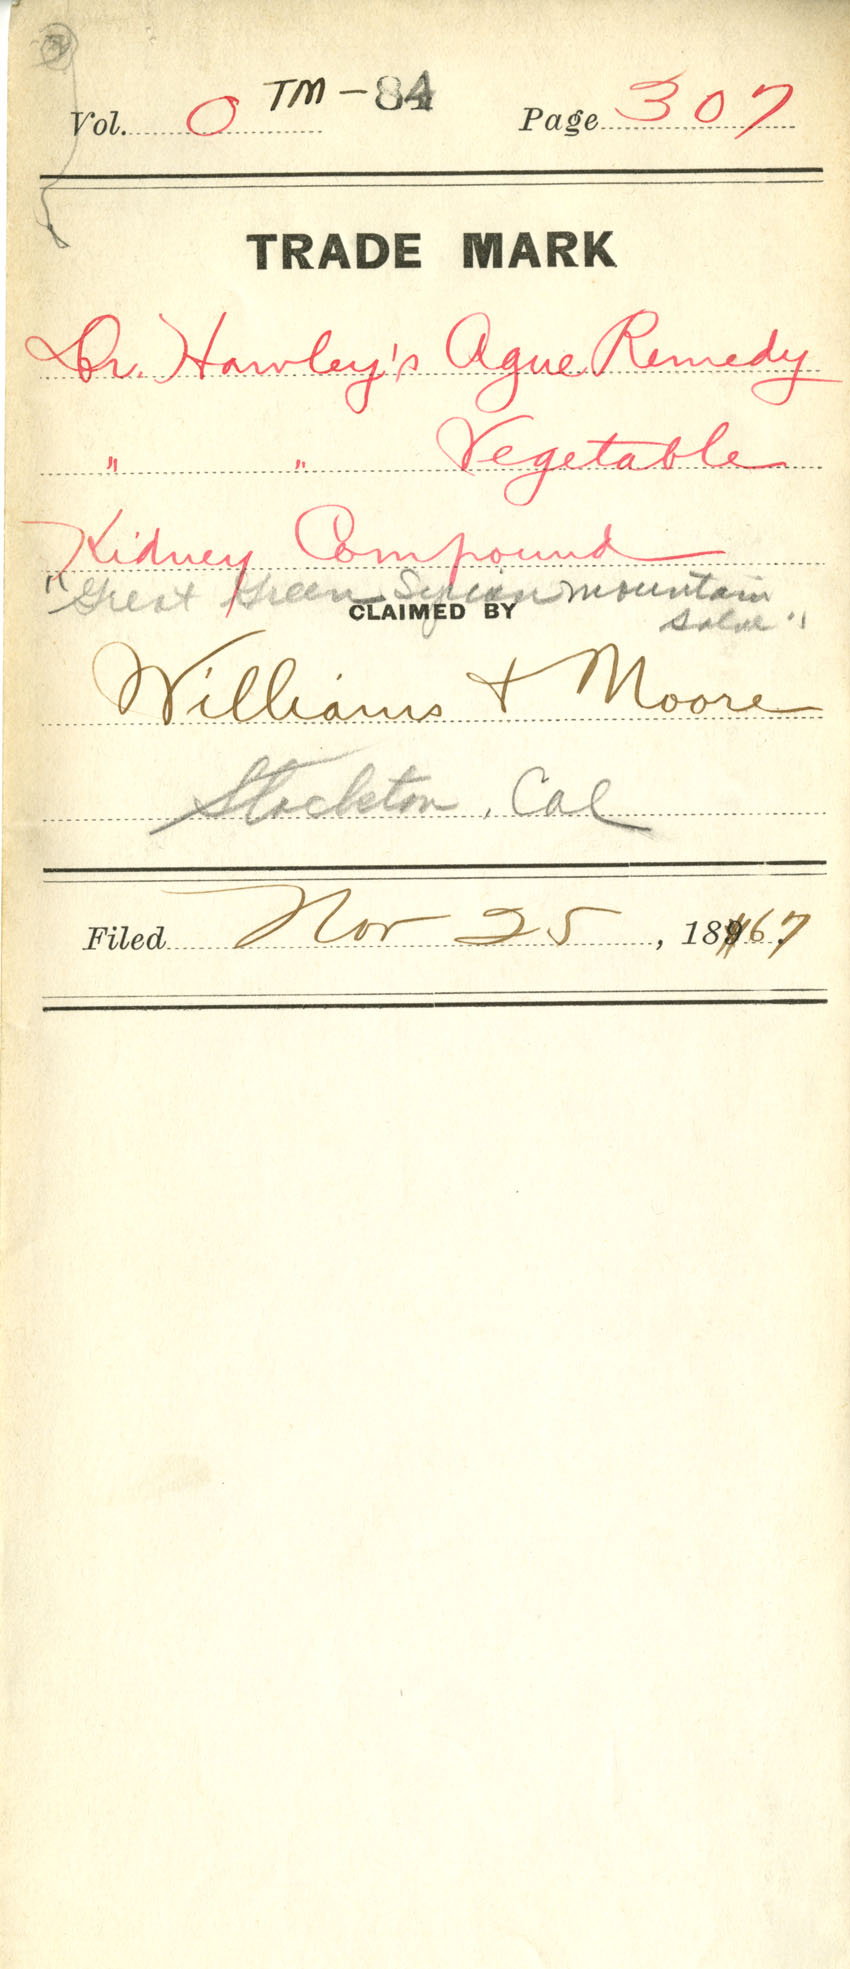 Vol. 0 TM-84 Page 307
TRADE MARK
Dr. Hawley's Ague Remedy
" " Vegetable
Kidney Compound
"Great Green Syrian mountain
salve"
CLAIMED BY
Williams & Moore
Stockton, Cal
Filed Nov 25, 1867